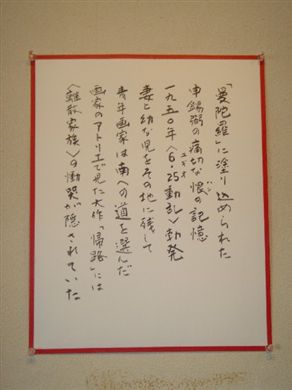 「曼陀羅」に塗り込められた
申錫弼の痛切な恨の記憶
一九五〇年〈6・25動乱〉勃発
妻と幼な児をその地に残して
青年画家は南への道を選んだ
画家のアトリエで見た大作「帰路」には
〈離散家族〉の慟哭が隠されていた